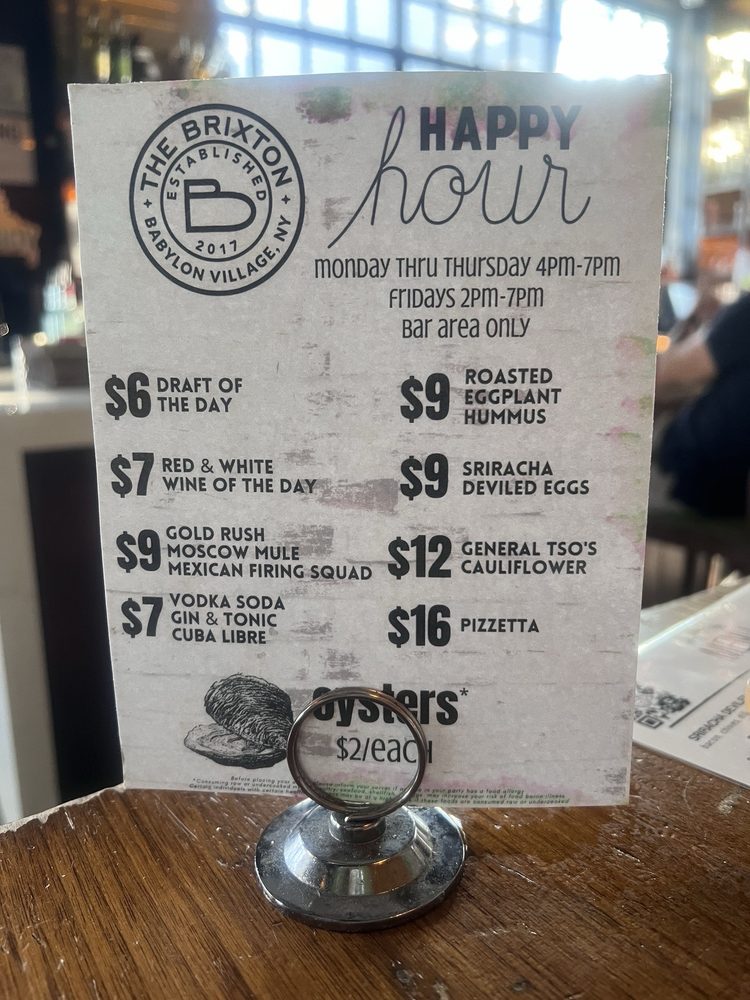 THE BRIXTON
ESTABLISHED
B
2017
BABYLON VILLAGE, NY
HAPPY
hour
MONDAY THRU THURSDAY 4PM-7PM
FRIDAYS 2PM-7PM
BAR AREA ONLY
$6 DRAFT OF
THE DAY
$7 RED & WHITE
WINE OF THE DAY
$9 GOLD RUSH
MOSCOW MULE
MEXICAN FIRING SQUAD
$7 VODKA SODA
GIN & TONIC
CUBA LIBRE
$9 ROASTED
EGGPLANT
HUMMUS
$9 SRIRACHA
DEVILED EGGS
$12 GENERAL TSO'S
CAULIFLOWER
$16 PIZZETTA
oysters*
$2/EACH
Before placing your inform your server if in your party has a food allergy
*Consuming raw or undercooked shellfish may increase your risk of food borne illness
Certain individuals with certain these foods are consumed raw or undercooked
SRIRACHA DEVILED